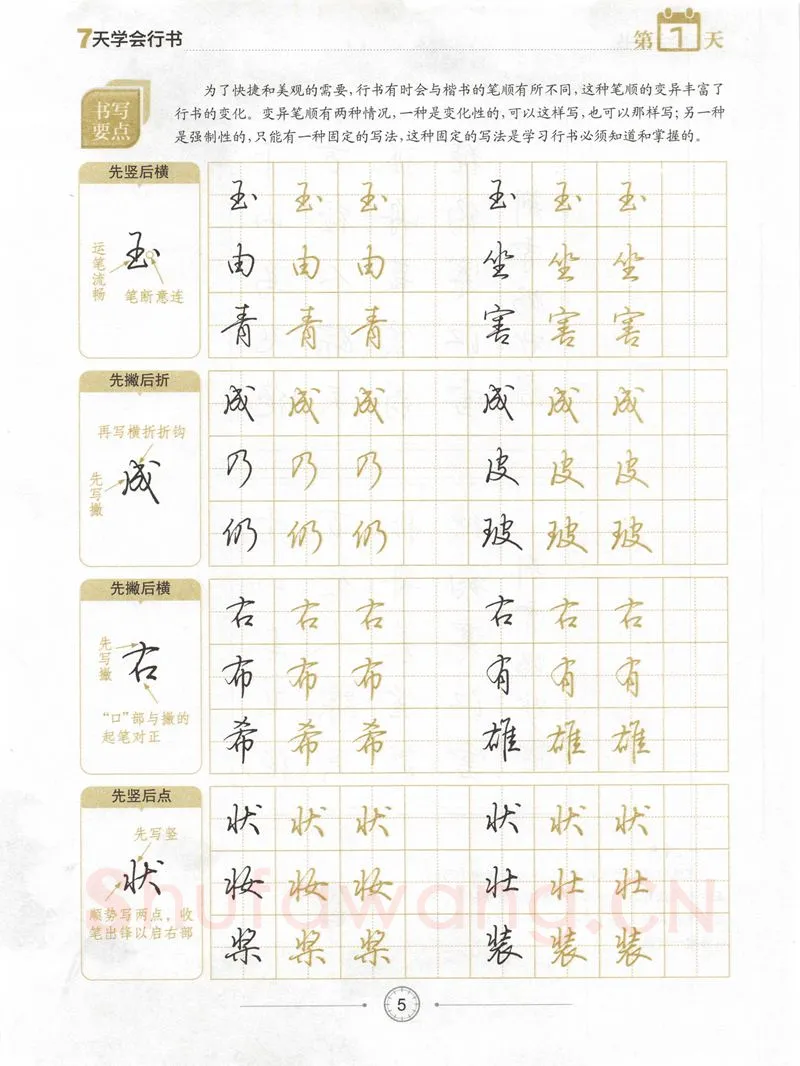 7天学会行书
第1天
书写
要点
为了快捷和美观的需要,行书有时会与楷书的笔顺有所不同,这种笔顺的变异丰富了
行书的变化。变异笔顺有两种情况,一种是变化性的,可以这样写,也可以那样写;另一种
是强制性的,只能有一种固定的写法,这种固定的写法是学习行书必须知道和掌握的。
先竖后横
玉
运笔流畅
笔断意连
玉玉玉玉玉玉
由由由坐坐坐
青青青害害害
先撇后折
再写横折折钩
先写撇
成
成成成成成成
乃乃乃皮皮皮
仍仍仍玻玻玻
先撇后横
先写撇
右
“口”部与撇的
起笔对正
右右右右右右
布布布有有有
希希希雄雄雄
先竖后点
先写竖
状
顺势写两点,收
笔出锋以启右部
状状状状状状
妆妆妆壮壮壮
桨桨桨装装装
Shufawang.CN
5